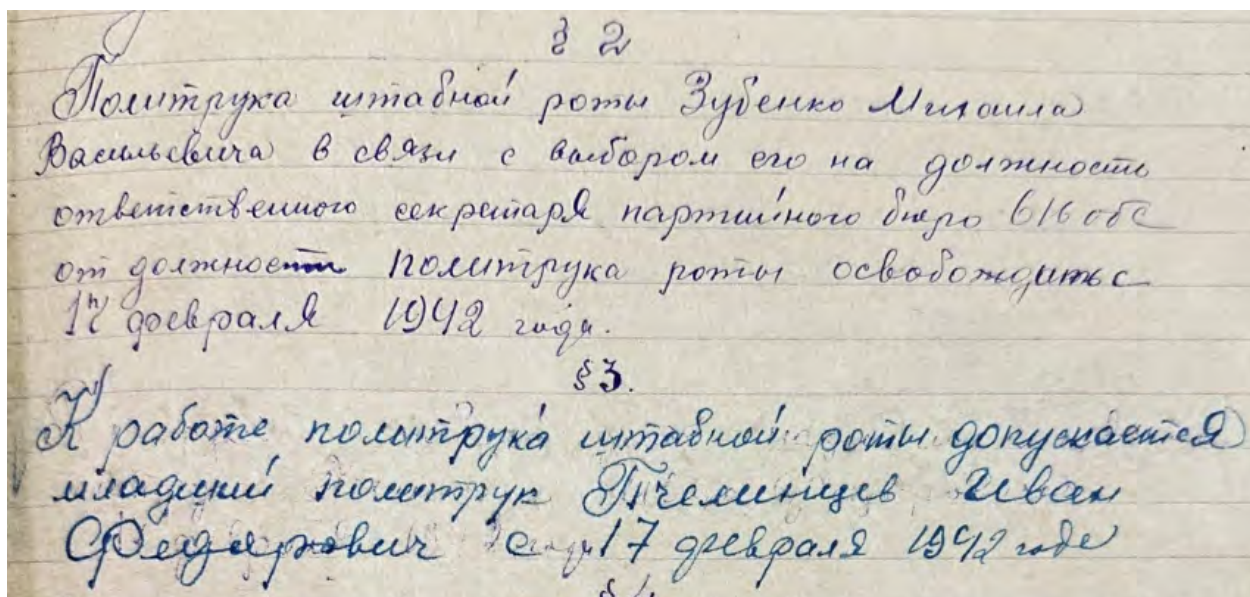 § 2
Политрука штабной роты Зубенко Михаила
Васильевича в связи с выбором его на должность
ответственного секретаря партийного бюро 616 обс
от должности политрука роты освобождить с
17 февраля 1942 года.
§ 3.
К работе политрука штабной роты допускается
младший политрук Пчелинцев Иван
Федорович с 17 февраля 1942 года
§ 4